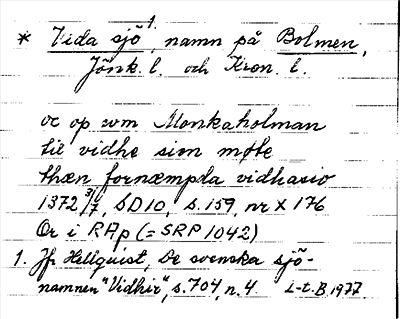 * Vida sjö¹, namn på Bolmen,
Jönk. l. och Kron. l.
oc op wm Monkaholman
til vidhe sion møte
thæn fornæmpda vidhasio
1372 3/7, SD10, s.159, nr X 176
Or i RAp (= SRP 1042)
1. Jfr Hellquist, De svenska sjö-
namnen "Vidhir", s.704, n.4. L-t.B 1977